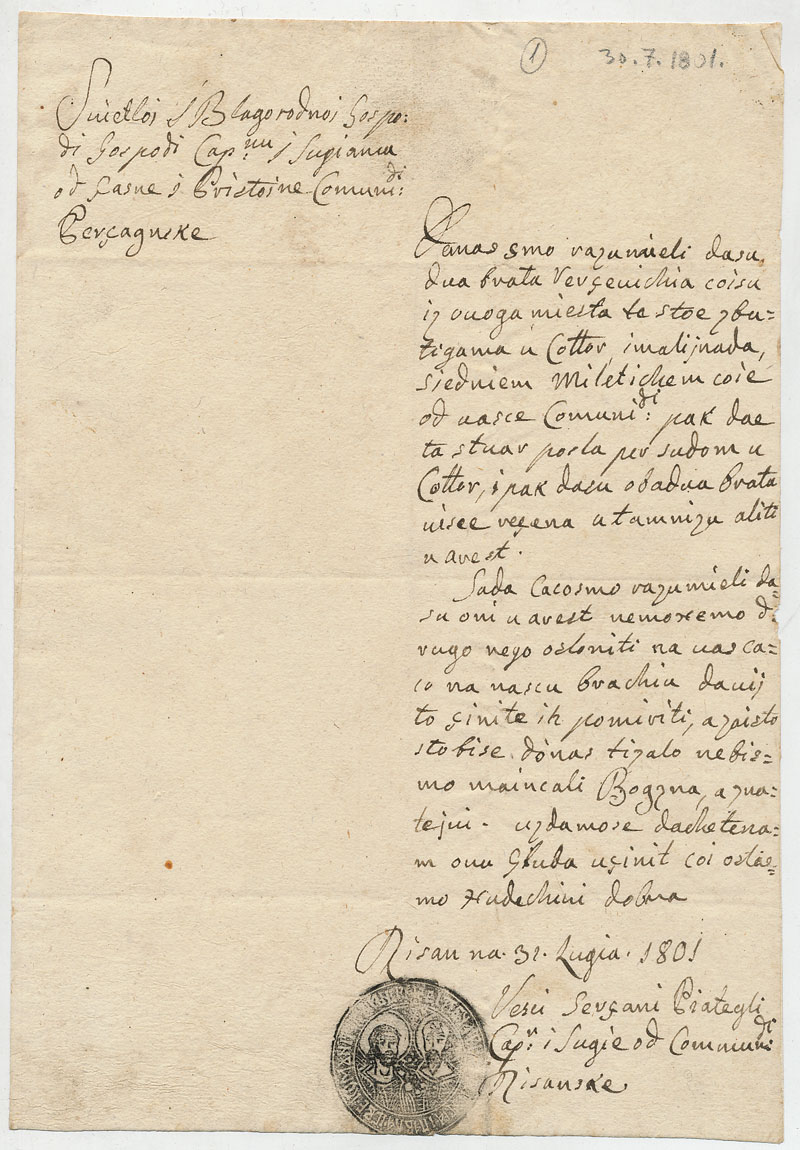 1 30.7.1801.
Suietloi i Blagorodnoi Gospo:
di Gospodi Cap:nu i Sugiama
od çasne i Pristoine Comuni:di
Perçagnske
Danas smo razumieli dasu
dua brata Verçeuichia coisu
iz ouoga miesta te stoe zbu=
tigama u Cottor, imalijnada,
siedniem Miletichem coie
od uasce Comuni:di pak dae
ta stuar posla per sudom u
Cottor, i pak dasu obadua brata
uisce reçena u tamnizu aliti
u arest.
Sada cacosmo razumieli da=
su oni u arest nemoxemo d:
rugo nego osloniti na uas ca=
co na nascu brachiu dauij
to çinite ih pomiriti, a zaisto
stobise donas tizalo nebis=
mo maincali Bogzna, a zna=
tejui. uzdamose dachetena=
m ouu gliuda uçinit coi ostae=
mo xudechini dobra
Risan na. 31. Lugia. 1801
Vesci Serçani Priategli
Cap:n i Sugie od Commun:di
Risanske